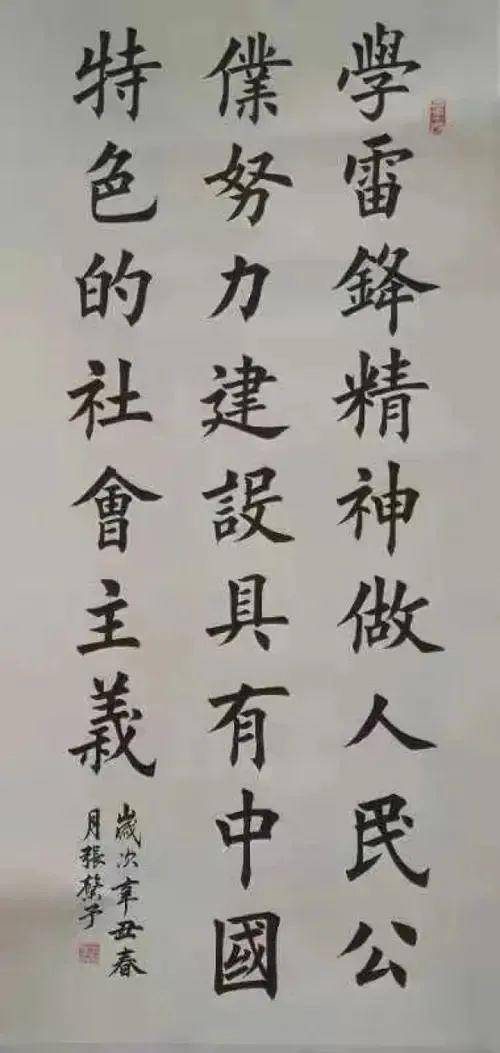 學雷鋒精神做人民公
僕努力建設具有中國
特色的社會主義
歲次辛丑春
月張 子